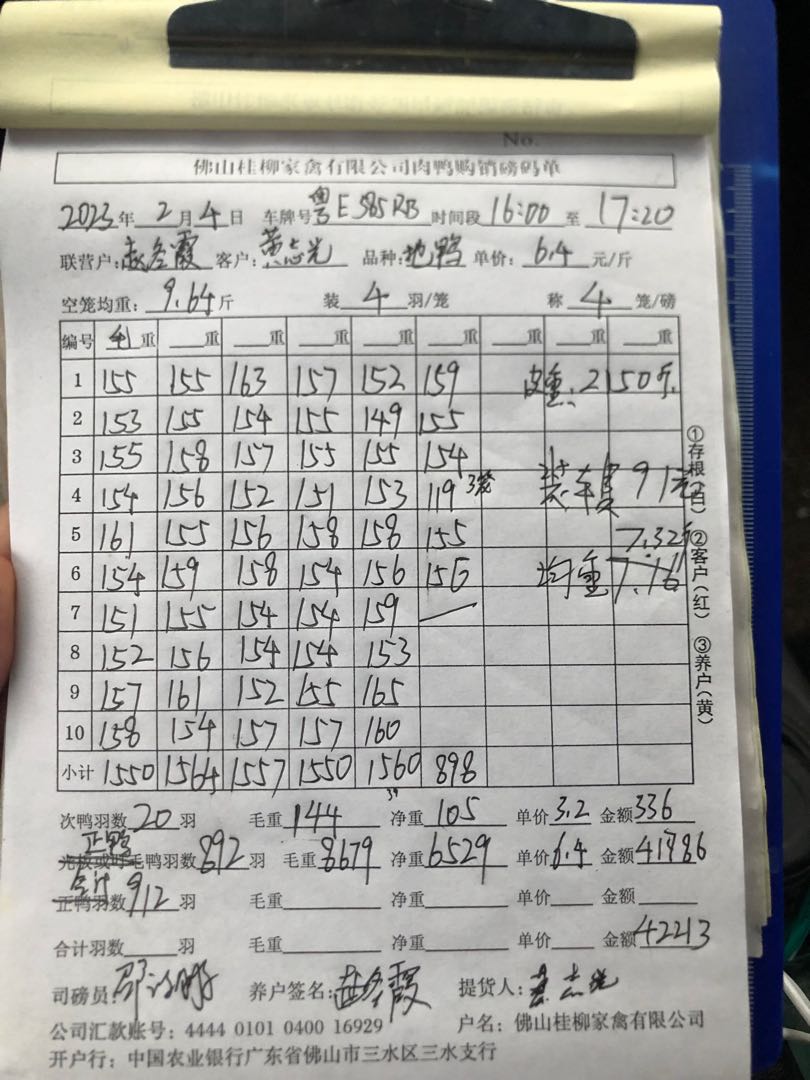 No.
佛山桂柳家禽有限公司肉鸭购销磅码单
2023年2月4日 车牌号粤E585RB 时间段16:00至17:20
联营户:赵冬霞 客户:黄志光 品种:地鸭 单价:6.4元/斤
空笼均重:9.64斤 装4羽/笼 称4笼/磅
编号 毛重 重 重 重 重 重 重 重 重
1 155 155 163 157 152 159 皮重:2150斤
2 153 155 154 155 149 155
3 155 158 157 155 155 154
4 154 156 152 151 153 119 3笼 装车费91元
5 161 155 156 158 158 155 7.32斤
6 154 159 158 154 156 156 均重7.16
7 151 155 154 154 159
8 152 156 154 154 153
9 157 161 152 155 165
10 158 154 157 157 160
小计 1550 1564 1557 1550 1560 898
39
次鸭羽数20羽 毛重144 净重105 单价3.2 金额336
正鸭
光板或吋毛鸭羽数892羽 毛重8679 净重6529 单价6.4 金额41786
合计
正鸭羽数912羽 毛重 净重 单价 金额
合计羽数 羽 毛重 净重 单价 金额42213
司磅员: 养户签名:赵冬霞 提货人:黄志光
公司汇款账号:4444 0101 0400 16929 户名:佛山桂柳家禽有限公司
开户行:中国农业银行广东省佛山市三水区三水支行
①存根(白) ②客户(红) ③养户(黄)